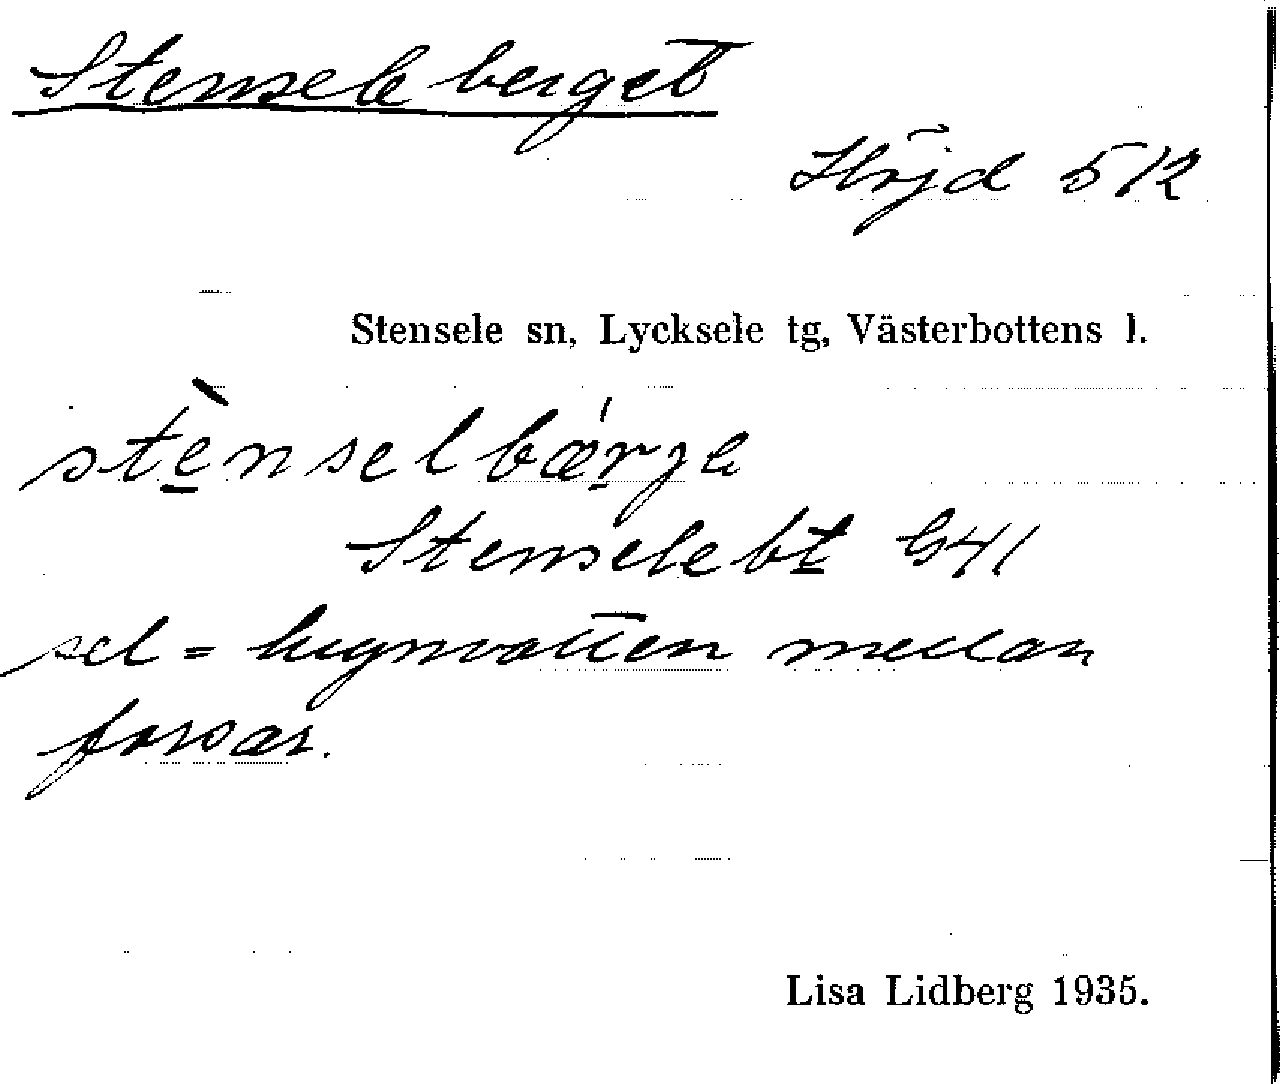 Stenseleberget
Höjd 512
Stensele sn, Lycksele tg, Västerbottens l.
stènselbǽrjə
Stenselebt G41
sel = lugnvatten mellan
forsar.
Lisa Lidberg 1935.